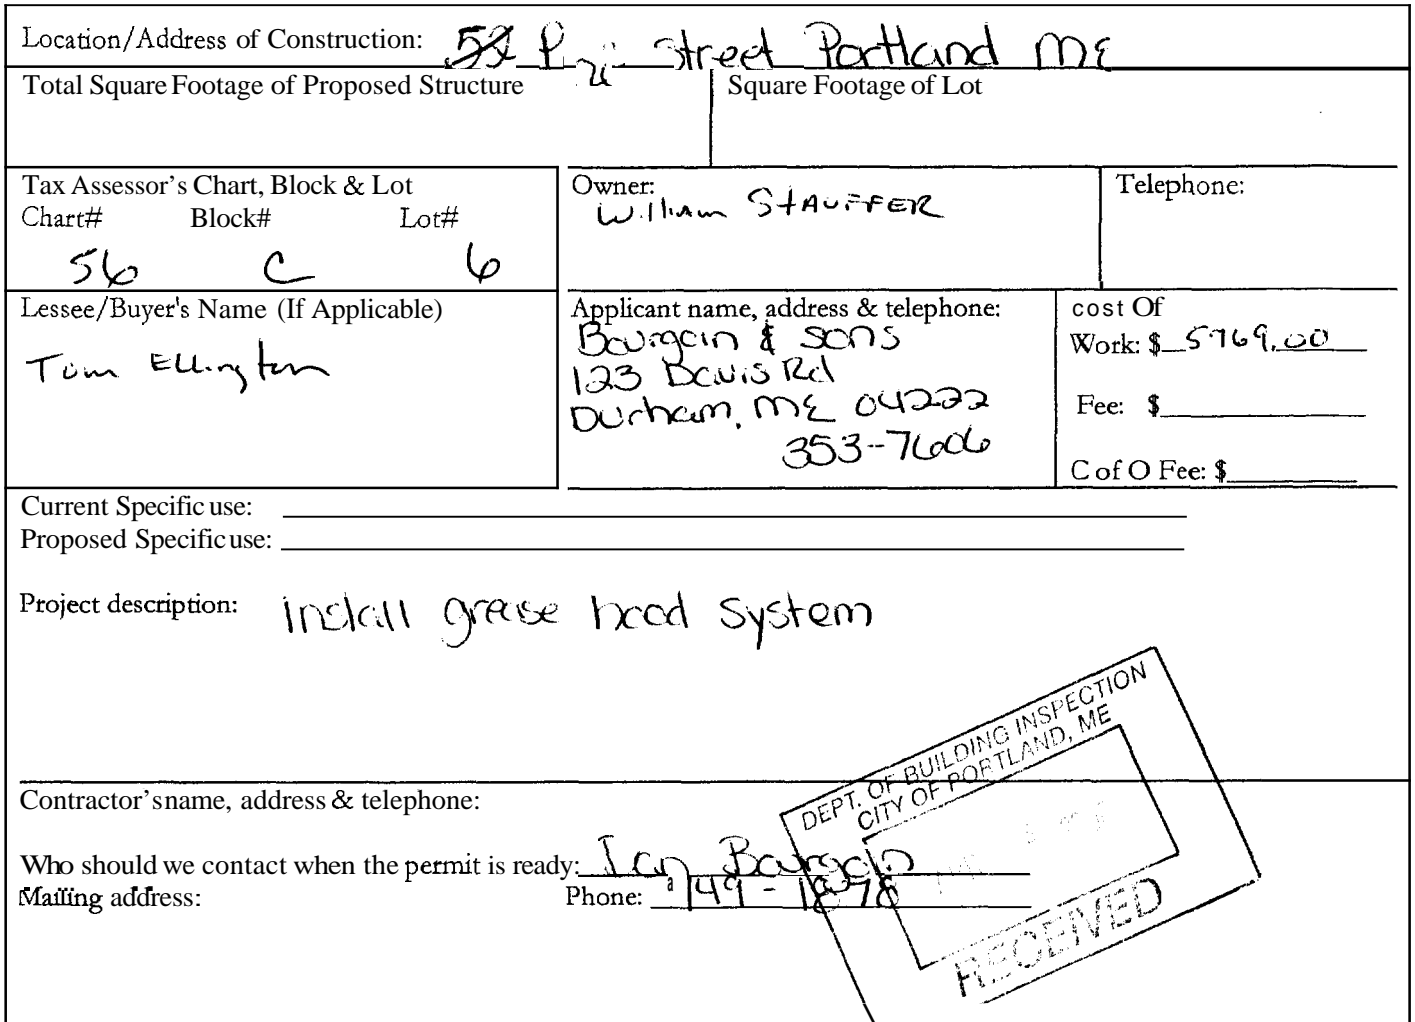 Location/Address of Construction: Street Portland ME
Total Square Footage of Proposed Structure
Square Footage of Lot
Tax Assessor's Chart, Block & Lot
Chart# Block# Lot#
56 C 6
Owner:
William STAUFFER
Telephone:
Lessee/Buyer's Name (If Applicable)
Tom Ellington
Applicant name, address & telephone:
Bourgoin & sons
123 Davis Rd
Durham, ME 04222
353-7606
cost Of
Work: $ 5769.00
Fee: $
C of O Fee: $
Current Specific use:
Proposed Specific use:
Project description: install grease hood system
DEPT. OF BUILDING INSPECTION
CITY OF PORTLAND, ME
RECEIVED
Contractor's name, address & telephone:
Who should we contact when the permit is ready: Ian Bourgoin
Mailing address:
Phone: 749-1878